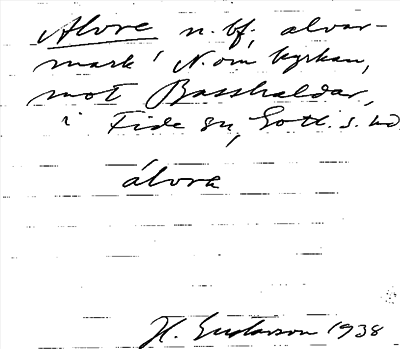 Alvre n. bf, alvar-
mark N. om kyrkan,
mot Basshaldar,
i Fide sn, Gotl. s. hd.
álvra
H. Gustavson 1938